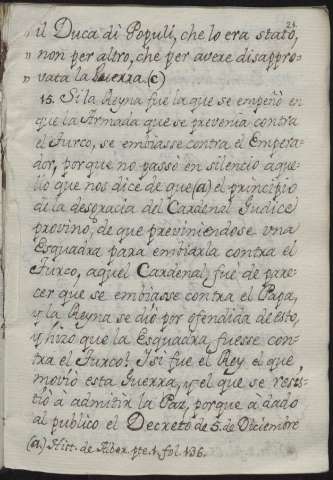 21.
„ il Duca di Populi, che lo era stato,
„ non per altro, che per avere disappro-
„ vata la Guerra. (c)
15. Si la Reyna fue la que se empeñó en
que la Armada que se prevenia contra
el Turco, se embiasse contra el Empera-
dor, porque no passò en silencio aque-
llo que nos dice de que (a) el principio
de la desgracia del Cardenal Judice
provino, de que previniendose una
Esquadra para embiarla contra el
Turco, aquel Cardenal fue de pare-
cer que se embiasse contra el Papa,
y la Reyna se dió por ofendida de esto,
y hizo que la Esquadra fuesse con-
tra el Turco? Y si fue el Rey el que
movió esta Guerra, y el que se resis-
tió a admitir la Paz, porque à dado
al publico el Decreto de 5. de Diciembre
(a.) Hist. de Alber. pte. 1. fol. 136.